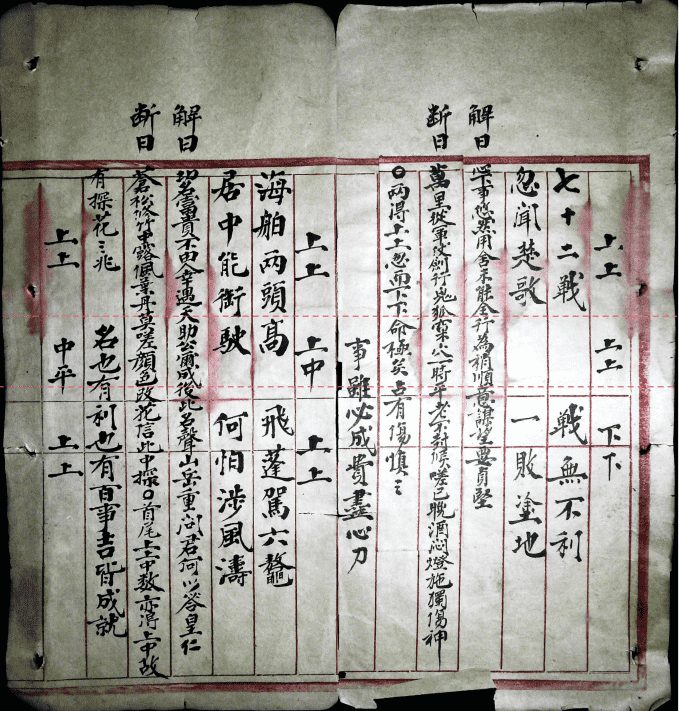 上上 上上 下下
七十二戰 戰無不利
忽聞楚歌 一敗塗地
解曰 用舍未能全行為稍順意謀望要貞堅
断曰 萬里從軍仗劍行兎狐窠穴一時平老不封侯嗟已晚酒沁燈施獨傷神
〇兩得上上忽而下下命極矣占有傷慎之
事雖必成費盡心力
上上 上中 上上
海舶兩頭髙 飛蓬駕六鼇
居中能銜駛 何怕涉風濤
解曰 功名富貴不由人幸遇天助公爾成從此名聲山岳重问君何以答皇仁
断曰 蒼松修竹露佩葉丹莫嗟顏色改花信此中探〇首尾上上中数亦得上中故
有探花之兆 名也有利也有百事吉皆成就
上上 中平 上上